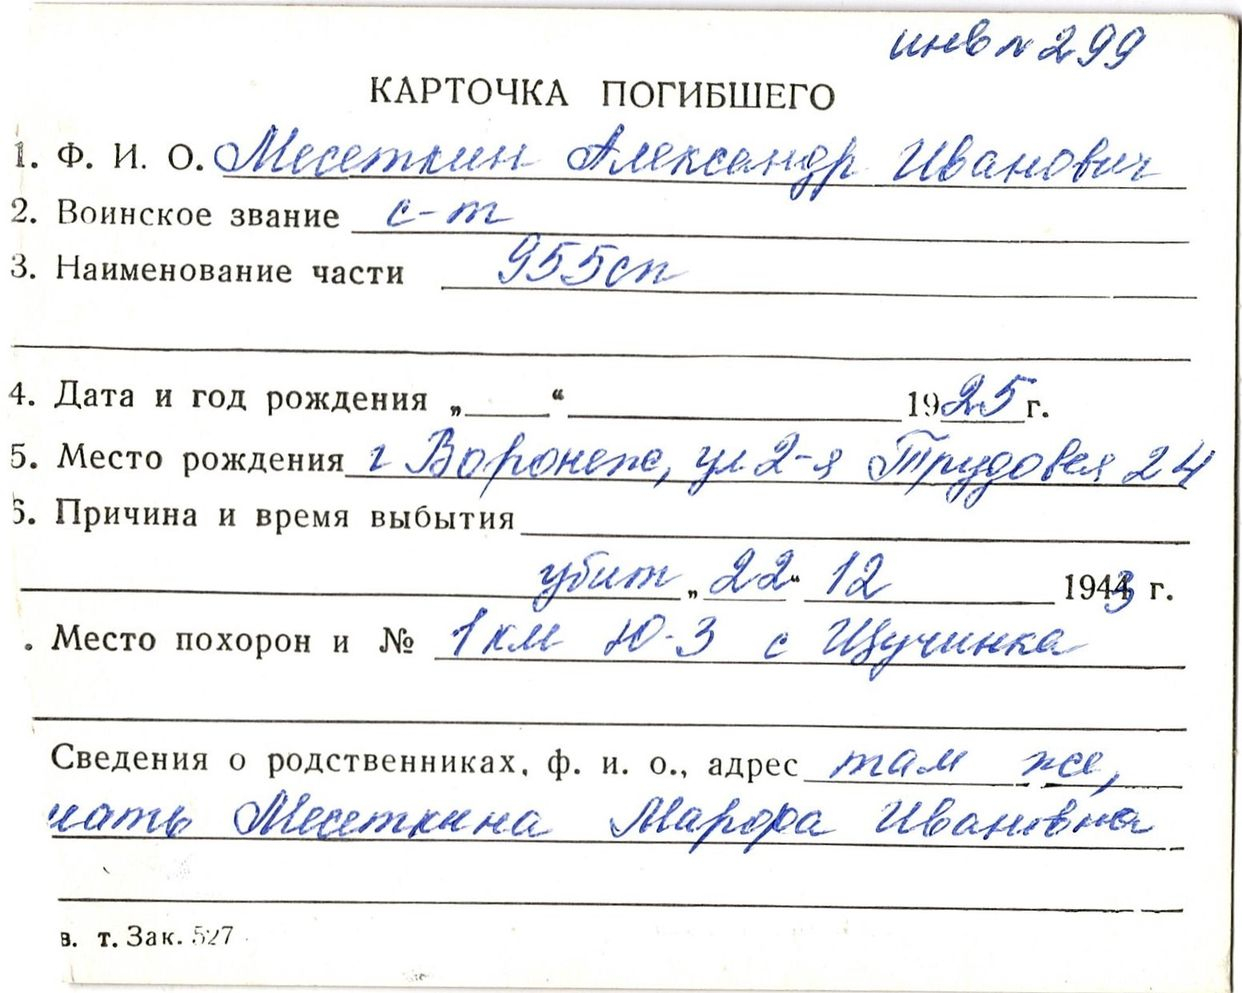 инв № 299
КАРТОЧКА ПОГИБШЕГО
1. Ф. И. О. Месеткин Александр Иванович
2. Воинское звание с-т
3. Наименование части 955сп
4. Дата и год рождения „ “ 1925 г.
5. Место рождения г Воронеж, ул 2-я Трудовая 24
6. Причина и время выбытия
убит „22“ 12 1943 г.
. Место похорон и № 1 км Ю-З с Щучинка
Сведения о родственниках, ф. и. о., адрес там же,
мать Месеткина Марфа Ивановна
в. т. Зак. 527